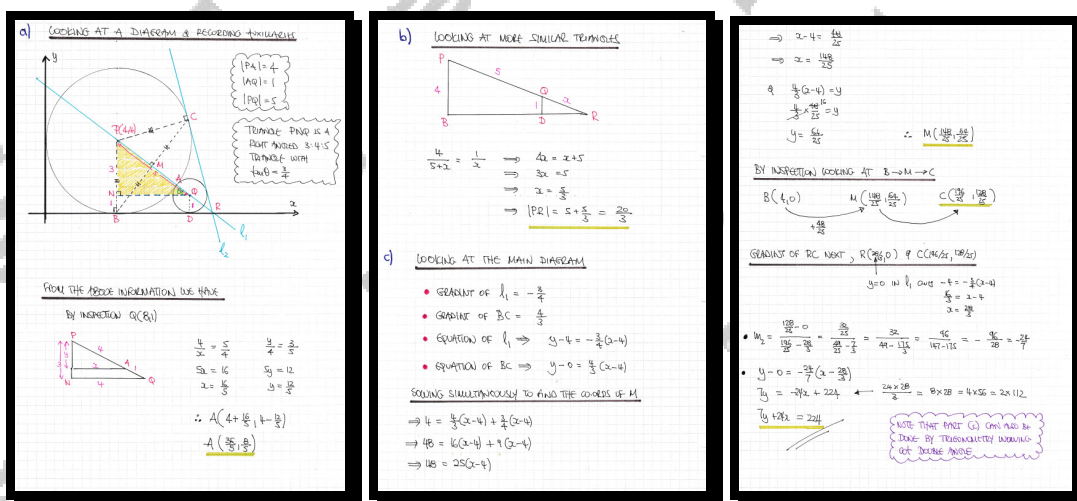 a) LOOKING AT A DIAGRAM & RECORDING AUXILIARIES
y
|PA|=4
|AQ|=1
|PQ|=5
TRIANGLE PNQ IS A
RIGHT ANGLED 3:4:5
TRIANGLE WITH
tanθ = 3/4
P(4,4)
C
M
A
3
N
θ
Q
1
1
B
D
R
x
l₁
l₂
FROM THE ABOVE INFORMATION WE HAVE
BY INSPECTION Q(8,1)
P
4
y
3
x
A
1
N
4
Q
4/x = 5/4
5x = 16
x = 16/5
y/4 = 3/5
5y = 12
y = 12/5
∴ A(4+16/5, 4-12/5)
A(36/5, 8/5)
b) LOOKING AT MORE SIMILAR TRIANGLES
P
5
4
Q
x
1
B
D
R
4/(5+x) = 1/x ⟹ 4x = x+5
⟹ 3x = 5
⟹ x = 5/3
⟹ |PR| = 5+5/3 = 20/3
c) LOOKING AT THE MAIN DIAGRAM
• GRADIENT OF l₁ = -3/4
• GRADIENT OF BC = 4/3
• EQUATION OF l₁ ⟹ y-4 = -3/4(x-4)
• EQUATION OF BC ⟹ y-0 = 4/3(x-4)
SOLVING SIMULTANEOUSLY TO FIND THE CO-ORDS OF M
⟹ 4 = 4/3(x-4) + 3/4(x-4)
⟹ 48 = 16(x-4) + 9(x-4)
⟹ 48 = 25(x-4)
⟹ x-4 = 48/25
⟹ x = 148/25
& 4/3(x-4) = y
4/3 × 48/25 = y
16
y = 64/25
∴ M(148/25, 64/25)
BY INSPECTION LOOKING AT B → M → C
B(4,0) M(148/25, 64/25) C(196/25, 128/25)
+48/25
GRADIENT OF RC NEXT, R(28/3,0) & C(196/25, 128/25)
y=0 in l₁ gives -4 = -3/4(x-4)
16/3 = x-4
x = 28/3
• m₂ = (128/25 - 0)/(196/25 - 28/3) = (32/25)/(49/25 - 7/3) = 32/(49 - 175/3) = 96/(147-175) = -96/28 = -24/7
• y-0 = -24/7(x-28/3)
7y = -24x + 224 ← (24×28)/3 = 8×28 = 4×56 = 2×112
7y + 24x = 224
NOTE THAT PART (c) CAN ALSO BE
DONE BY TRIGONOMETRY WORKING
OUT DOUBLE ANGLE